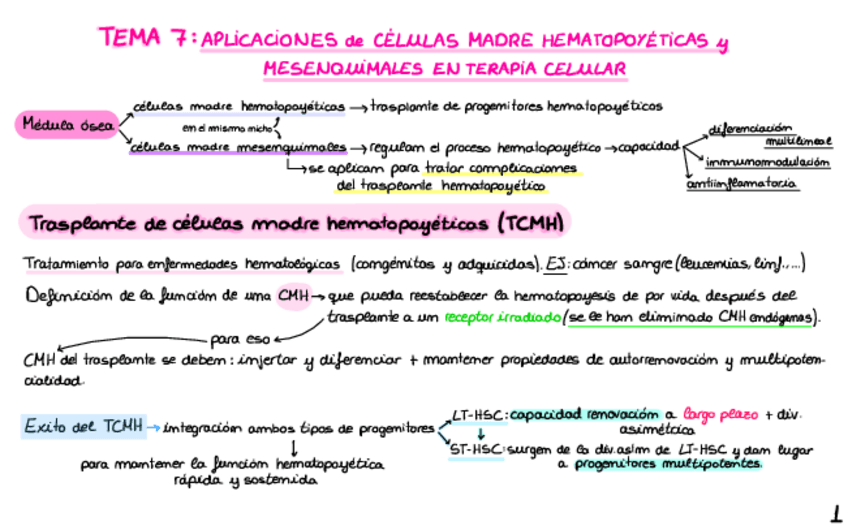 TEMA 7: APLICACIONES de CÉLULAS MADRE HEMATOPOYÉTICAS y
MESENQUIMALES EN TERAPIA CELULAR
Médula ósea
células madre hematopoyéticas → trasplante de progenitores hematopoyéticos
en el mismo nicho
células madre mesenquimales → regulan el proceso hematopoyético → capacidad
diferenciación
multilineal
immunomodulación
antiinflamatoria
se aplican para tratar complicaciones
del traspeante hematopoyético
Trasplante de células madre hematopoyéticas (TCMH)
Tratamiento para enfermedades hematológicas (congénitos y adquiridas). EJ: cáncer sangre (leucemias, linf.,...)
Definición de la función de una CMH → que pueda reestablecer la hematopoyesis de por vida después del
trasplante a un receptor irradiado (se le han eliminado CMH endógenas).
para eso
CMH del trasplante se deben: injertar y diferenciar + mantener propiedades de autorrenovación y multipoten-
cialidad.
Exito del TCMH → integración ambos tipos de progenitores
LT-HSC: capacidad renovación a largo plazo + div.
asimétrica
ST-HSC: surgen de la div. asim de LT-HSC y dan lugar
a progenitores multipotentes.
para mantener la función hematopoyética
rápida y sostenida
1